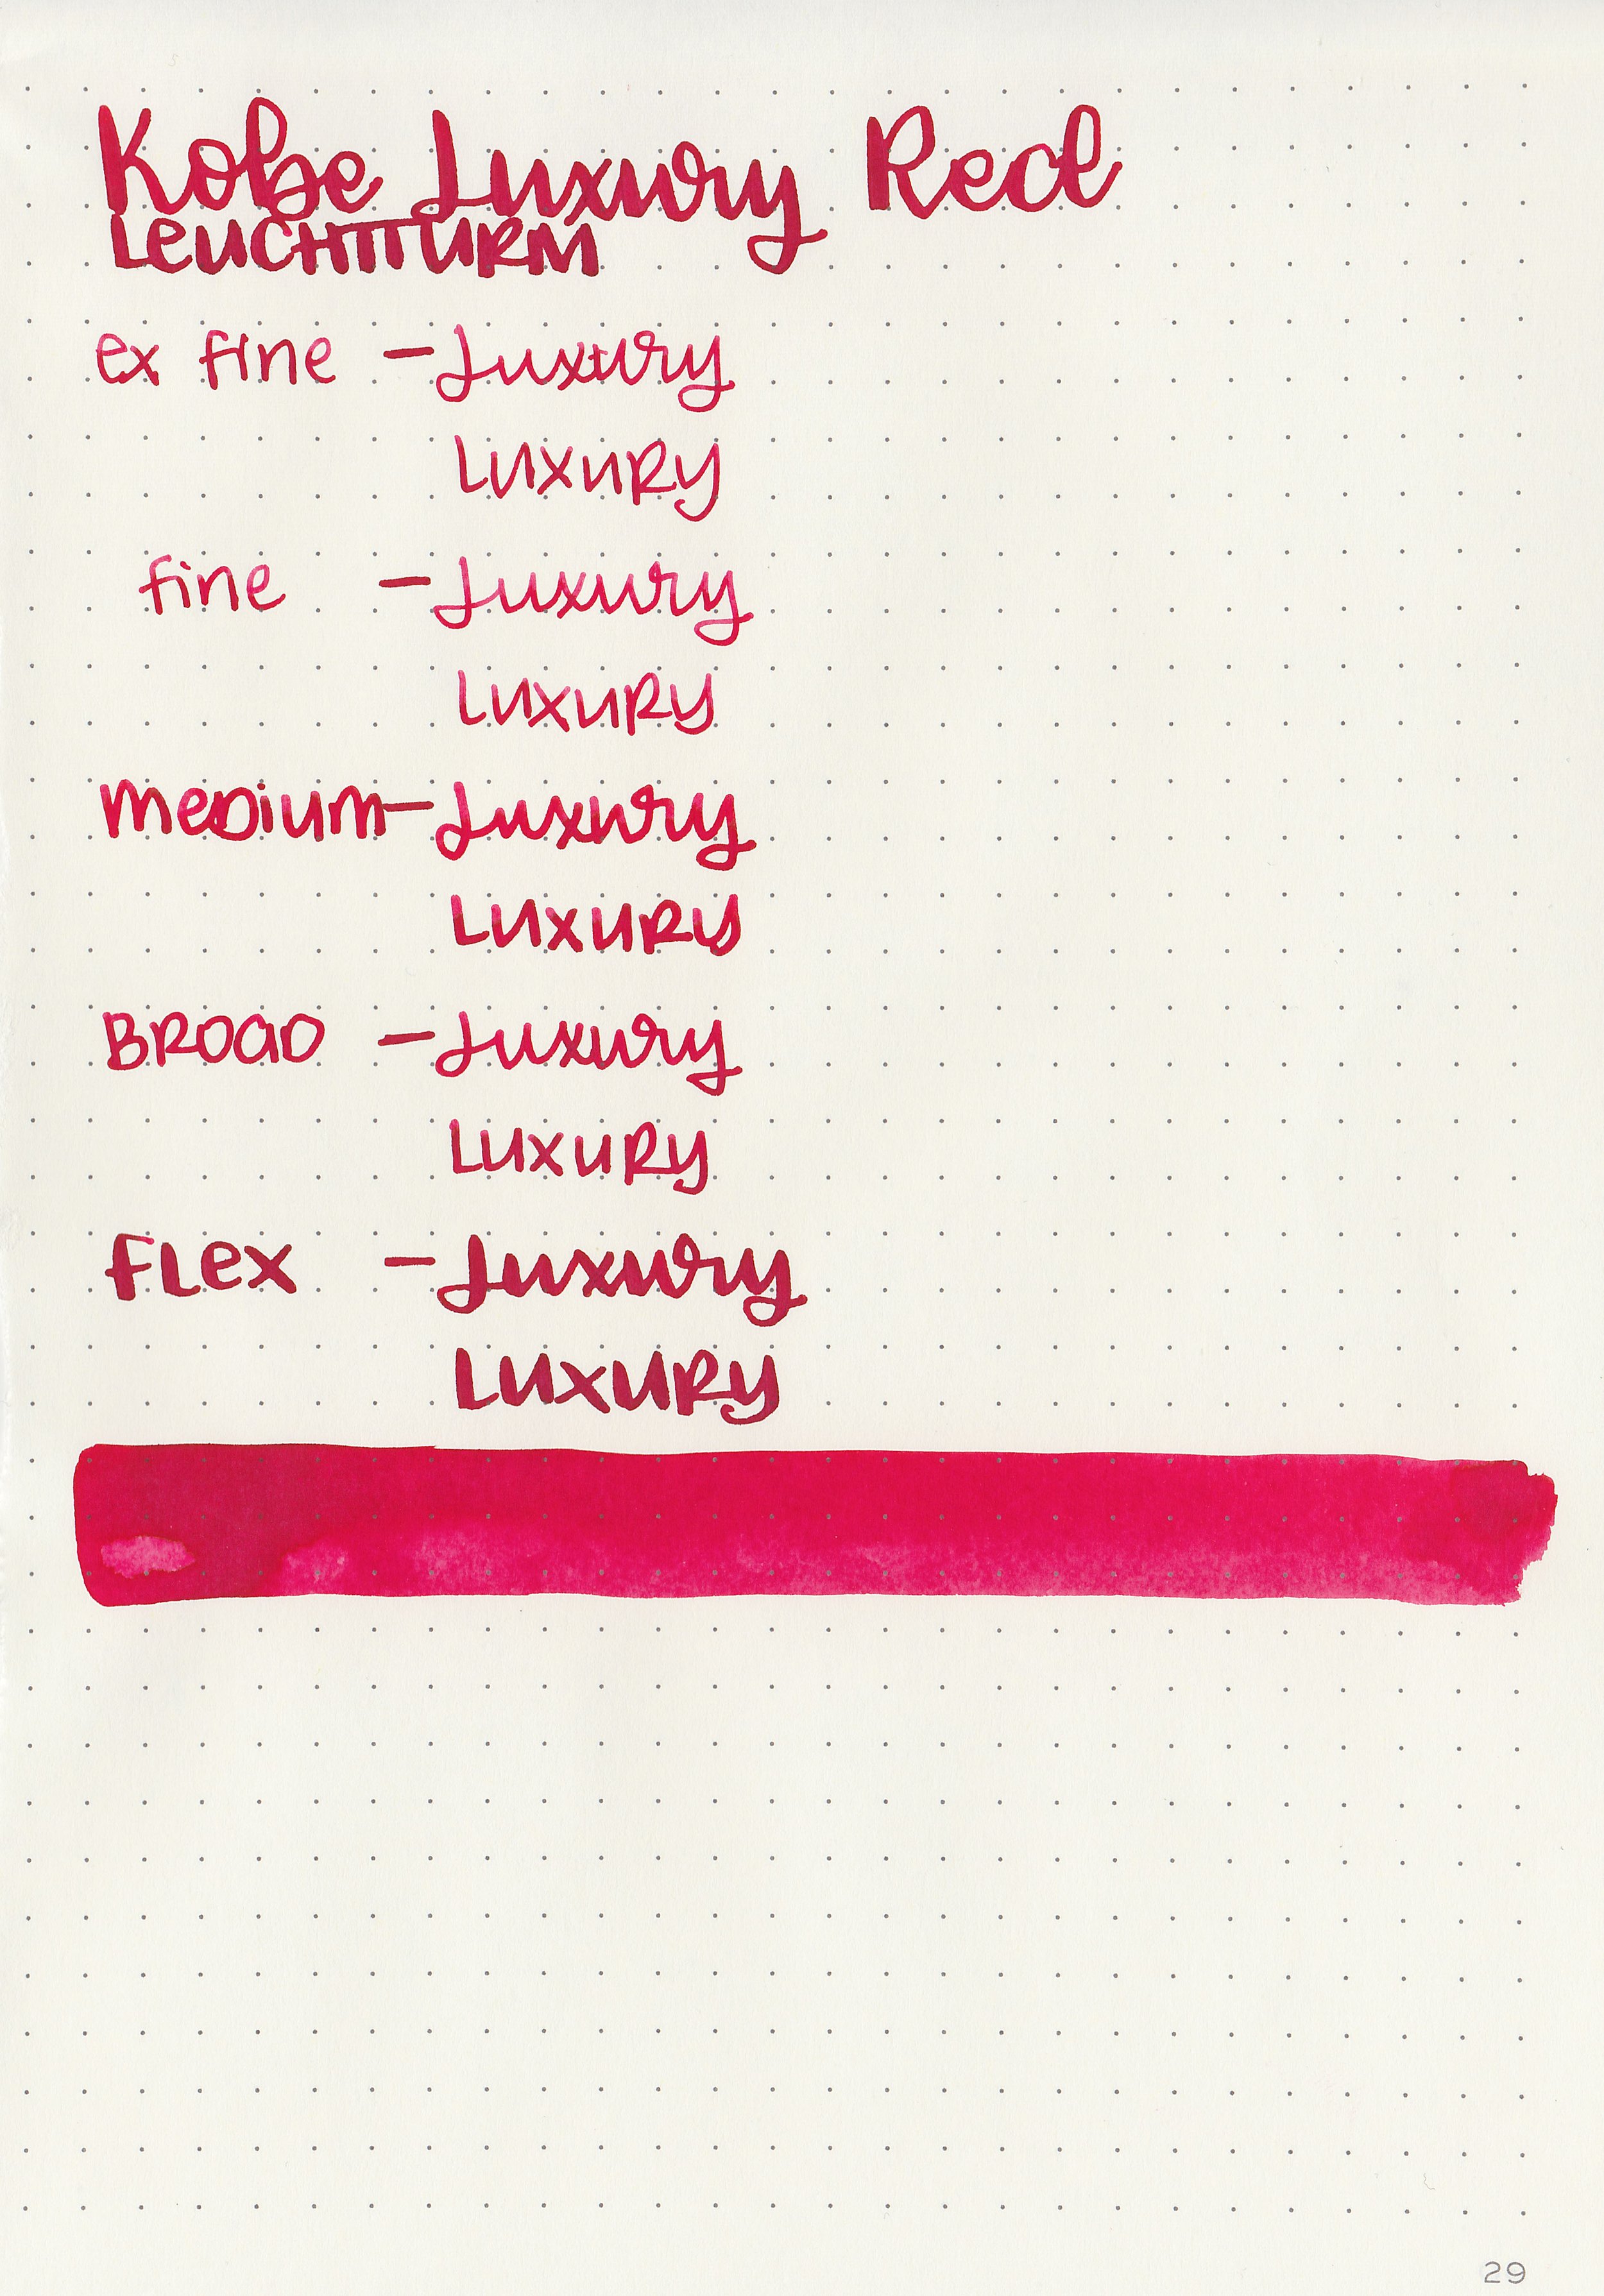 Kobe Luxury Red
LEUCHTTTURM
ex fine - Luxury
LUXURY
fine - Luxury
LUXURY
MeDium - Luxury
LUXURY
BROaD - Luxury
LUXURY
FLex - Luxury
LUXURY
29